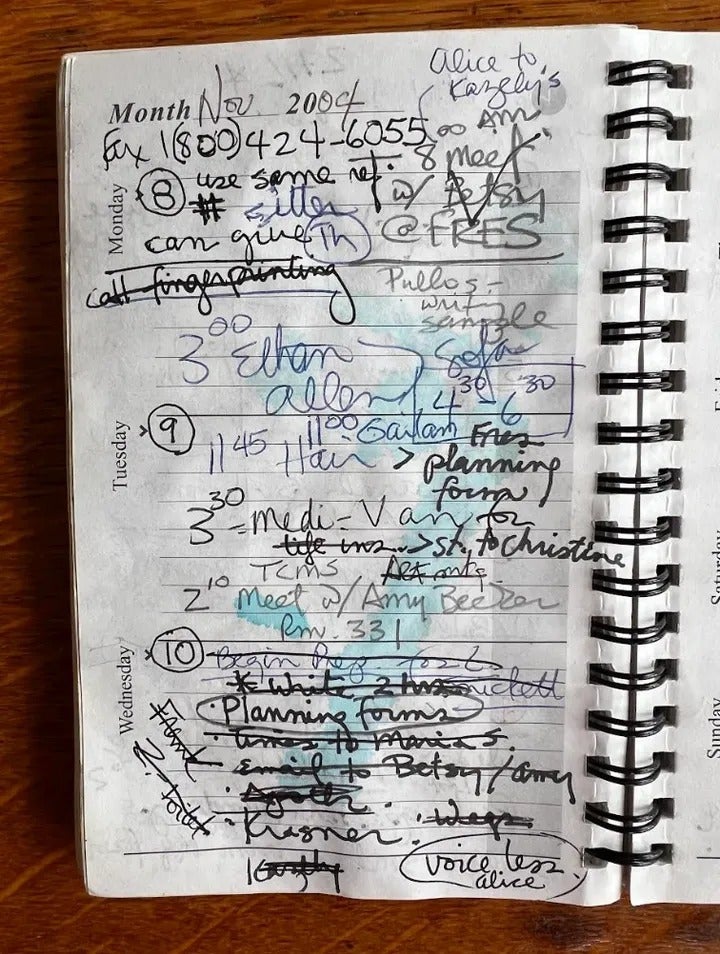 Alice to
Kazely's
Month Nov. 2004
Fax 1(800)424-6055
8 00 AM
Meet
w/ Betsy
@ FRES
Monday
8
use same ref.
# sitter
can give Th
call fingerprinting
Pullos -
writ
sample
3 00 Ethan
Allen
Sofa
4 30 - 6 30
Tuesday
9
11 00
11 45 Hair >
Fres
planning
forms
3 30 = Medi = Van for
life ins. > St. to Christine
TCMS
2 10 Meet w/ Amy Becker
Rm. 331
Wednesday
10
Begin Prep for
* write 2 hrs
Planning forms
times to Maria S.
Email to Betsy/Amy
Krasner
Wegs.
voice less
alice